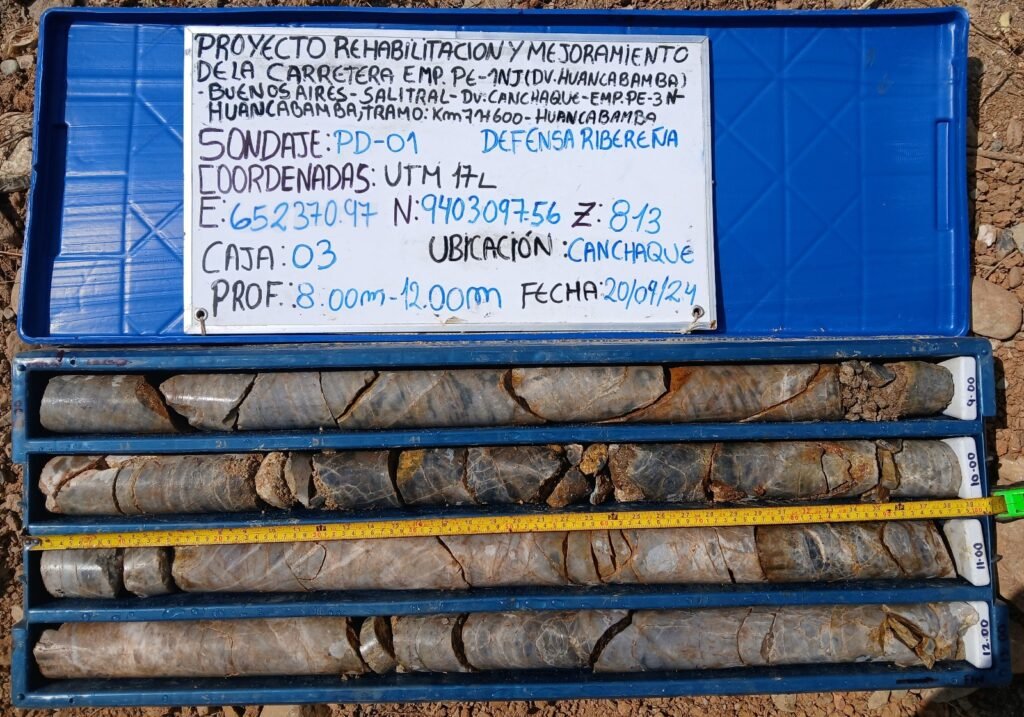 PROYECTO REHABILITACION Y MEJORAMIENTO
DE LA CARRETERA EMP. PE-1NJ (DV. HUANCABAMBA)
-BUENOS AIRES-SALITRAL-DV. CANCHAQUE-EMP. PE-3N-
HUANCABAMBA, TRAMO: Km 71+600-HUANCABAMBA
SONDAJE: PD-01 DEFENSA RIBEREÑA
COORDENADAS: UTM 17L
E: 652370.97 N: 9403097.56 Z: 813
CAJA: 03 UBICACIÓN: CANCHAQUE
PROF: 8.00m-12.00m FECHA: 20/09/24
9.00
10.00
11.00
12.00
FIN